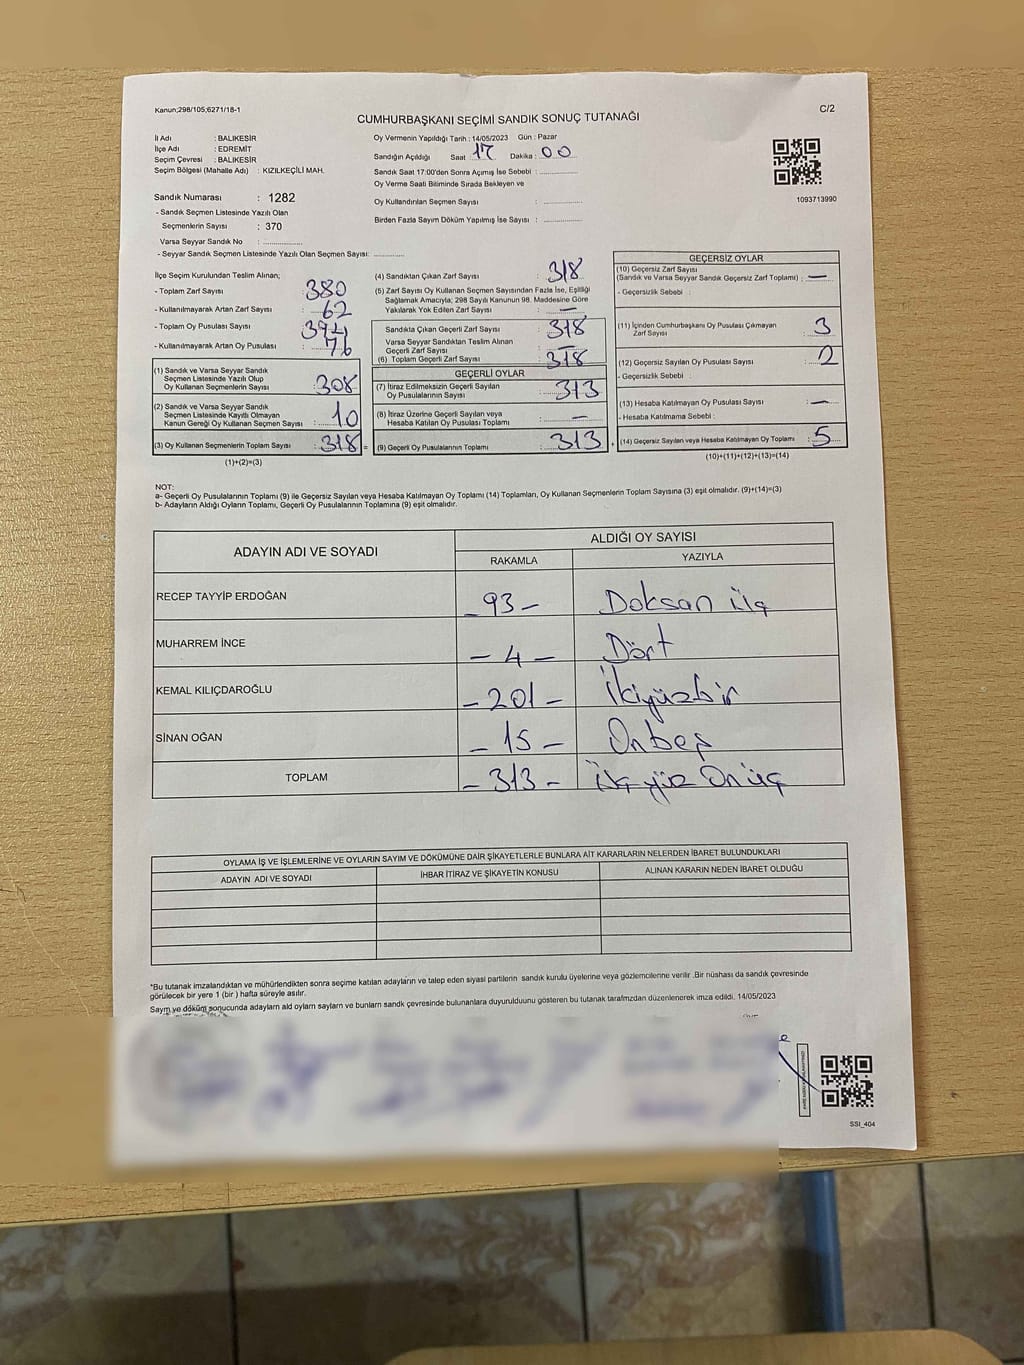 Kanun;298/105;6271/18-1
C/2
CUMHURBAŞKANI SEÇİMİ SANDIK SONUÇ TUTANAĞI
İl Adı : BALIKESİR
İlçe Adı : EDREMİT
Seçim Çevresi : BALIKESİR
Seçim Bölgesi (Mahalle Adı) : KIZILKEÇİLİ MAH.
Sandık Numarası : 1282
- Sandık Seçmen Listesinde Yazılı Olan
Seçmenlerin Sayısı : 370
Varsa Seyyar Sandık No : ............
- Seyyar Sandık Seçmen Listesinde Yazılı Olan Seçmen Sayısı: ............
Oy Vermenin Yapıldığı Tarih : 14/05/2023 Gün : Pazar
Sandığın Açıldığı Saat 17 Dakika : 00
Sandık Saat 17:00'den Sonra Açımış İse Sebebi : ............
Oy Verme Saati Bitiminde Sırada Bekleyen ve
Oy Kullandırılan Seçmen Sayısı : ............
Birden Fazla Sayım Döküm Yapılmış İse Sayısı : ............
1093713990
İlçe Seçim Kurulundan Teslim Alınan;
- Toplam Zarf Sayısı : 380
- Kullanılmayarak Artan Zarf Sayısı : 62
- Toplam Oy Pusulası Sayısı : 394
- Kullanılmayarak Artan Oy Pusulası : 76
(1) Sandık ve Varsa Seyyar Sandık
Seçmen Listesinde Yazılı Olup
Oy Kullanan Seçmenlerin Sayısı : 308
(2) Sandık ve Varsa Seyyar Sandık
Seçmen Listesinde Kayıtlı Olmayan
Kanun Gereği Oy Kullanan Seçmen Sayısı : 10
(3) Oy Kullanan Seçmenlerin Toplam Sayısı : 318 =
(1)+(2)=(3)
(4) Sandıktan Çıkan Zarf Sayısı : 318
(5) Zarf Sayısı Oy Kullanan Seçmen Sayısından Fazla İse, Eşitliği
Sağlamak Amacıyla; 298 Sayılı Kanunun 98. Maddesine Göre
Yakılarak Yok Edilen Zarf Sayısı : —
Sandıkta Çıkan Geçerli Zarf Sayısı : 318
Varsa Seyyar Sandıktan Teslim Alınan
Geçerli Zarf Sayısı : —
(6) Toplam Geçerli Zarf Sayısı : 318
GEÇERLİ OYLAR
(7) İtiraz Edilmeksizin Geçerli Sayılan
Oy Pusulalarının Sayısı : 313
(8) İtiraz Üzerine Geçerli Sayılan veya
Hesaba Katılan Oy Pusulası Toplamı : —
(9) Geçerli Oy Pusulalarının Toplamı : 313
GEÇERSİZ OYLAR
(10) Geçersiz Zarf Sayısı
(Sandık ve Varsa Seyyar Sandık Geçersiz Zarf Toplamı) : —
- Geçersizlik Sebebi :
(11) İçinden Cumhurbaşkanı Oy Pusulası Çıkmayan
Zarf Sayısı : 3
(12) Geçersiz Sayılan Oy Pusulası Sayısı : 2
- Geçersizlik Sebebi :
(13) Hesaba Katılmayan Oy Pusulası Sayısı : —
- Hesaba Katılmama Sebebi :
(14) Geçersiz Sayılan veya Hesaba Katılmayan Oy Toplamı : 5
(10)+(11)+(12)+(13)=(14)
NOT:
a- Geçerli Oy Pusulalarının Toplamı (9) ile Geçersiz Sayılan veya Hesaba Katılmayan Oy Toplamı (14) Toplamları, Oy Kullanan Seçmenlerin Toplam Sayısına (3) eşit olmalıdır. (9)+(14)=(3)
b- Adayların Aldığı Oyların Toplamı, Geçerli Oy Pusulalarının Toplamına (9) eşit olmalıdır.
ADAYIN ADI VE SOYADI
ALDIĞI OY SAYISI
RAKAMLA YAZIYLA
RECEP TAYYİP ERDOĞAN - 93 - Doksan üç
MUHARREM İNCE - 4 - Dört
KEMAL KILIÇDAROĞLU - 201 - İkiyüzbir
SİNAN OĞAN - 15 - Onbeş
TOPLAM - 313 - Üç yüz On üç
OYLAMA İŞ VE İŞLEMLERİNE VE OYLARIN SAYIM VE DÖKÜMÜNE DAİR ŞİKAYETLERLE BUNLARA AİT KARARLARIN NELERDEN İBARET BULUNDUKLARI
ADAYIN ADI VE SOYADI İHBAR İTİRAZ VE ŞİKAYETİN KONUSU ALINAN KARARIN NEDEN İBARET OLDUĞU
*Bu tutanak imzalandıktan ve mühürlendikten sonra seçime katılan adayların ve talep eden siyasi partilerin sandık kurulu üyelerine veya gözlemcilerine verilir .Bir nüshası da sandık çevresinde
görülecek bir yere 1 (bir ) hafta süreyle asılır.
Saym ve döküm sonucunda adaylarn ald oylarn saylarn ve bunlarn sandk çevresinde bulunanlara duyurulduunu gösteren bu tutanak tarafmzdan düzenlenerek imza edildi. 14/05/2023
SSI_404